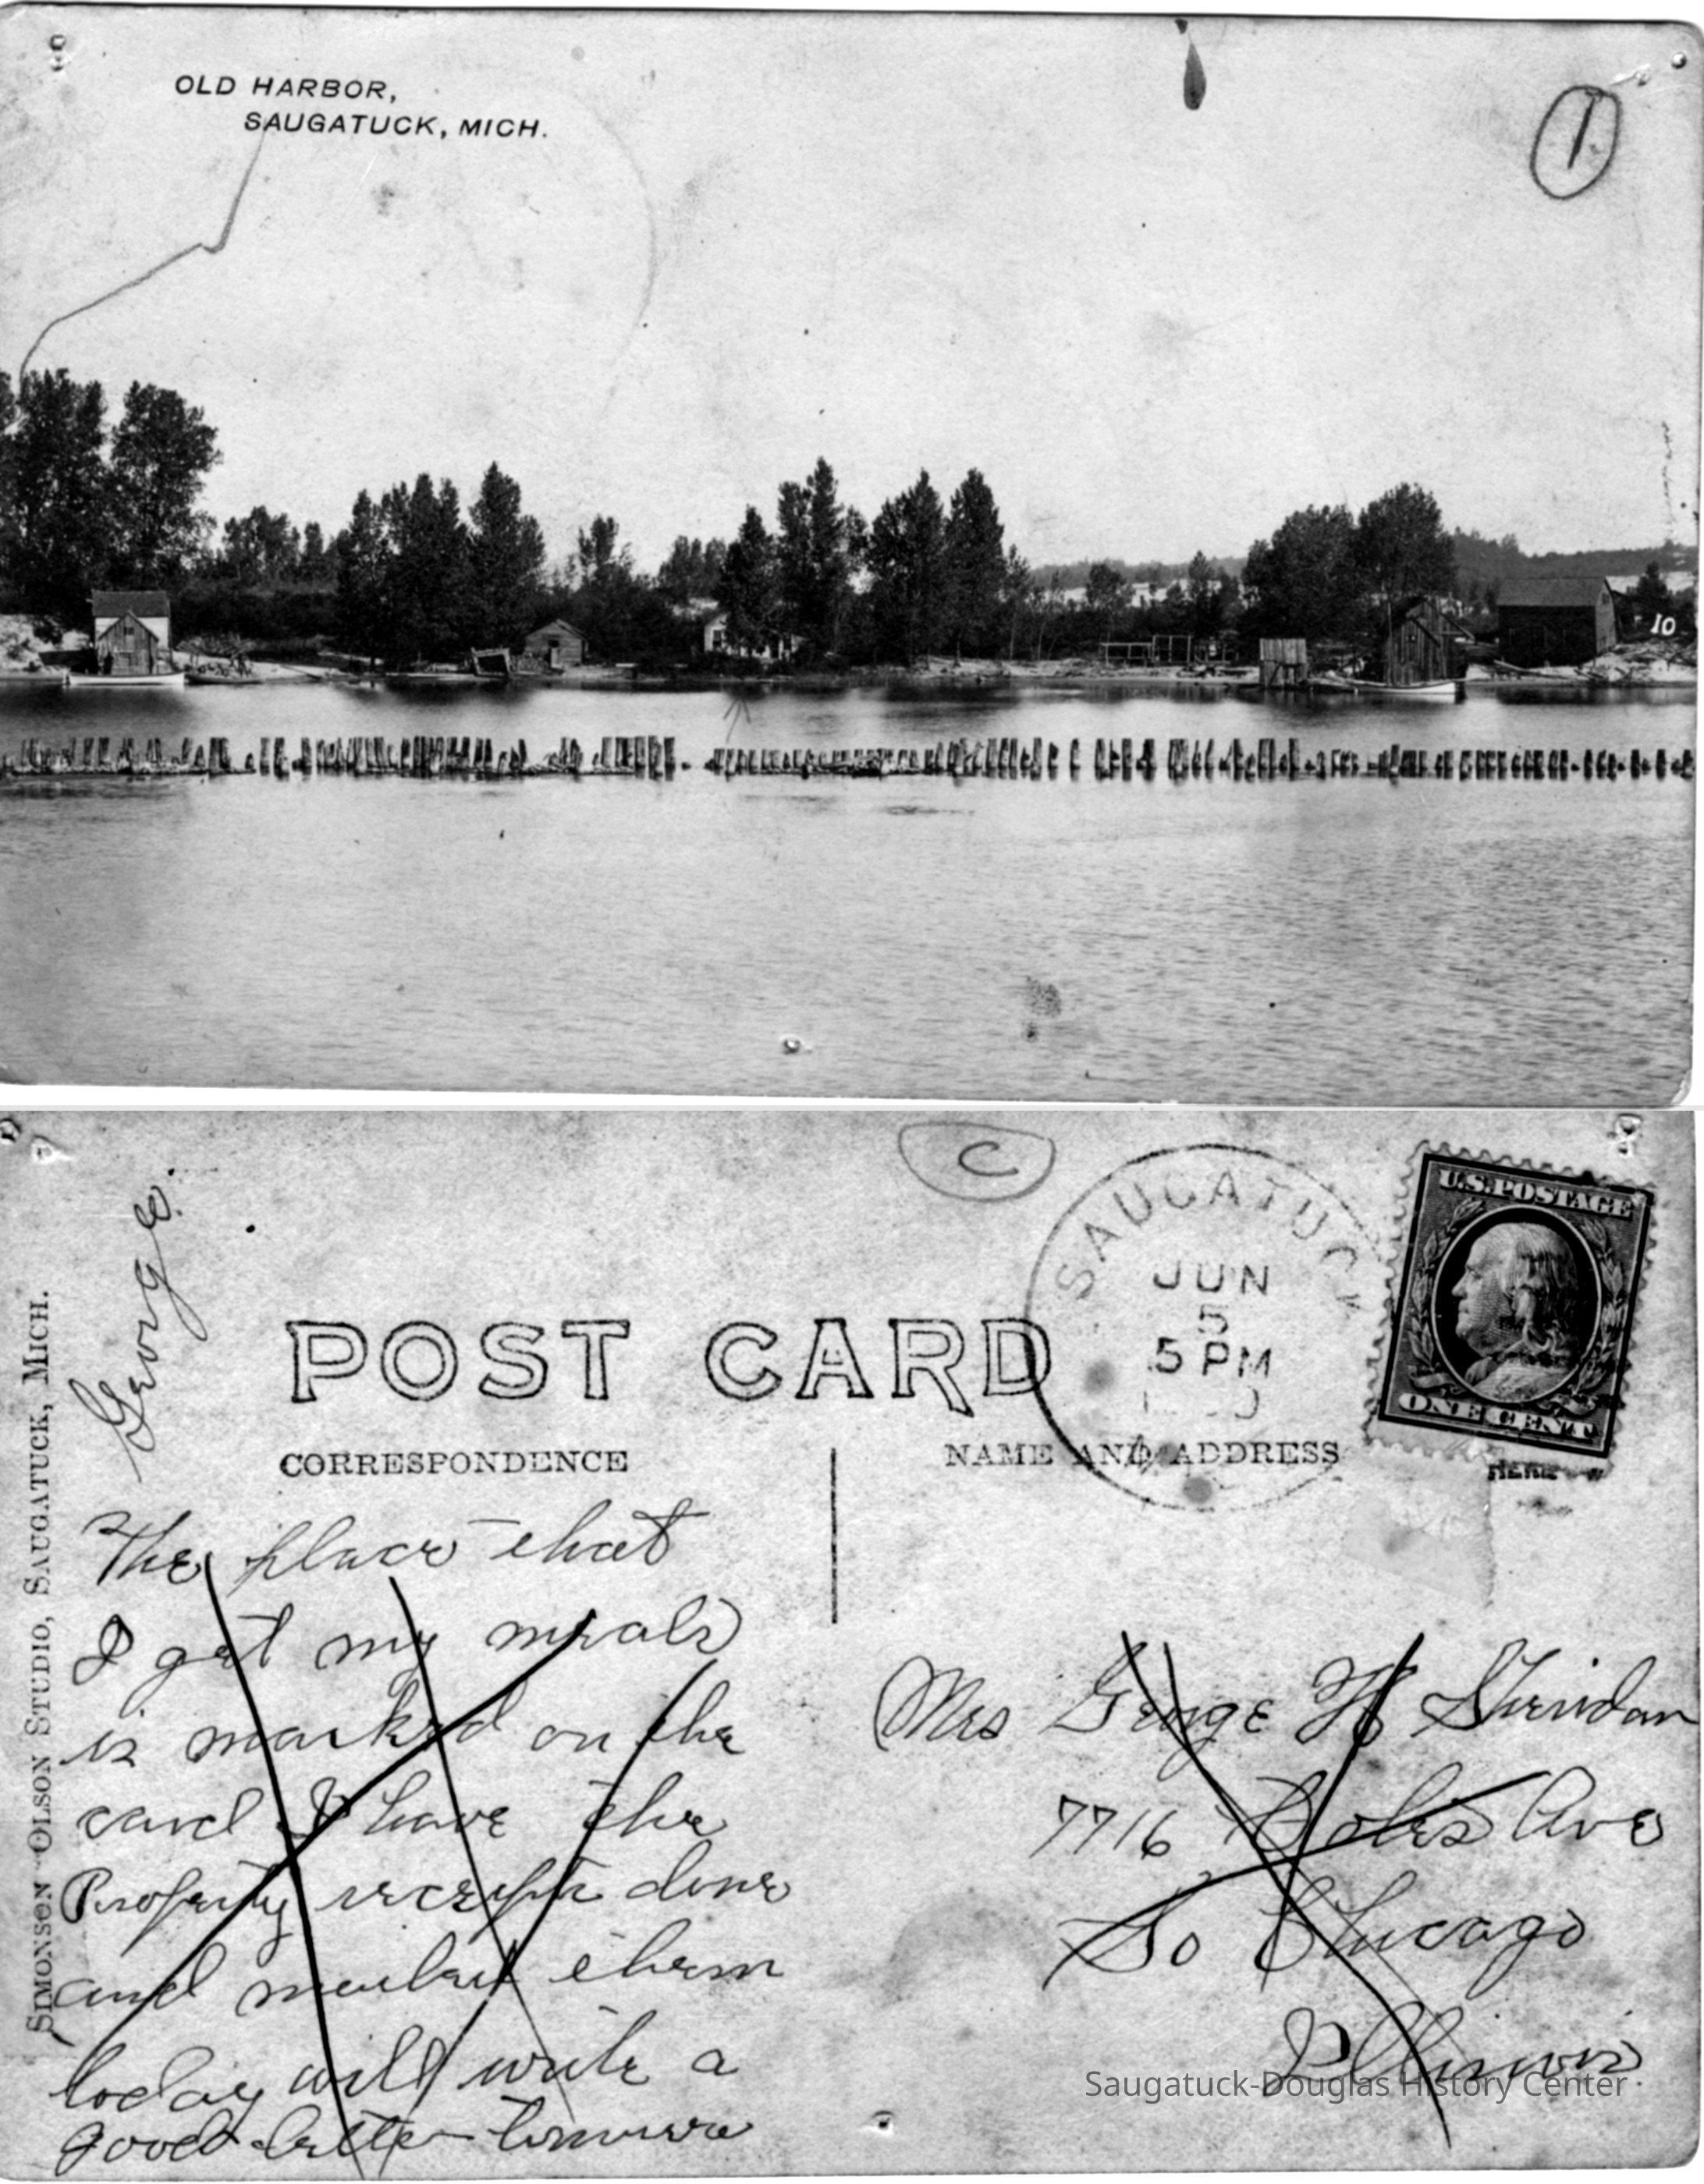 OLD HARBOR,
SAUGATUCK, MICH.
1
10
C
SAUGATUCK
JUN
5
5 PM
U.S. POSTAGE
ONE CENT
George.
POST CARD
CORRESPONDENCE
NAME AND ADDRESS
HERE
SIMONSON-OLSON STUDIO, SAUGATUCK, MICH.
The place that
I get my meals
is marked on the
card I have the
Property receipts done
and them
today will write a
good letter
Mrs George H Sheridan
7716 Ave
So Chicago
Illinois.
Saugatuck-Douglas History Center